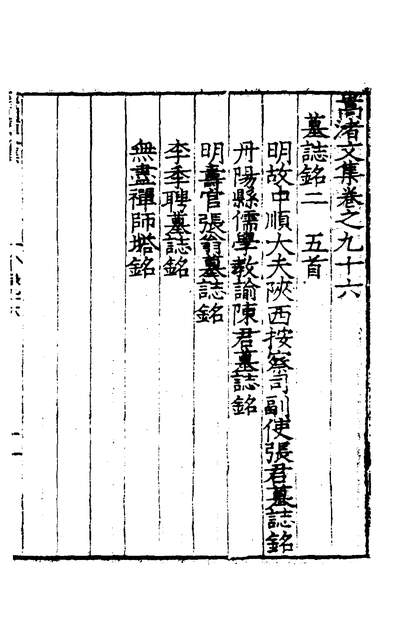 嵩渚文集卷之九十六
墓誌銘二 五首
明故中順大夫陝西按察司副使張君墓誌銘
丹陽縣儒學教諭陳君墓誌銘
明壽官張翁墓誌銘
李季聘墓誌銘
無盡禪師塔銘